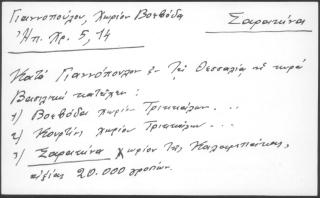 Γιαννοπούλου, Χωρίον Βοεβόδα
Ἠπ. Χρ. 5, 14
Σαρακίνα
Κατά Γιαννόπουλον ἐν τῇ Θεσσαλίᾳ ἡ κυρά
Βασιλική κατεῖχε:
1) Βοεβόδα χωρίον Τρικκάλων...
2) χωρίον Τρικκάλων...
3) Σαρακίνα χωρίον τῆς Καλαμπάκας,
ἀξίας 20.000 γροσίων.